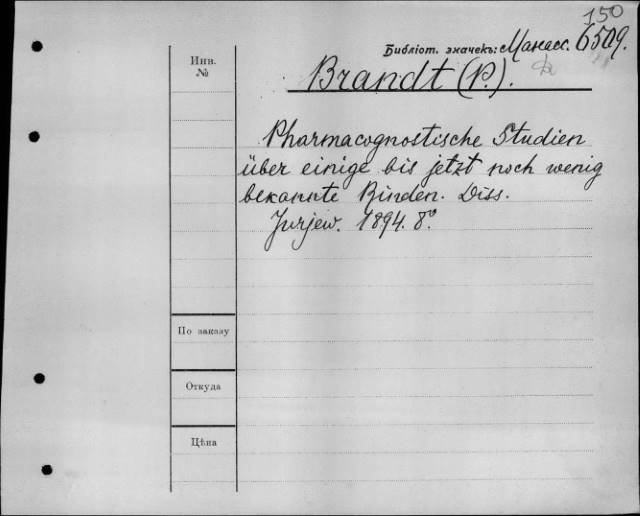 150
Инв. №
Библіот. значекъ: Манасс. 6509.
Brandt (P.).
Pharmacognostische Studien
über einige bis jetzt noch wenig
bekannte Rinden. Diss.
Jurjew. 1894. 8º
По заказу
Откуда
Цѣна